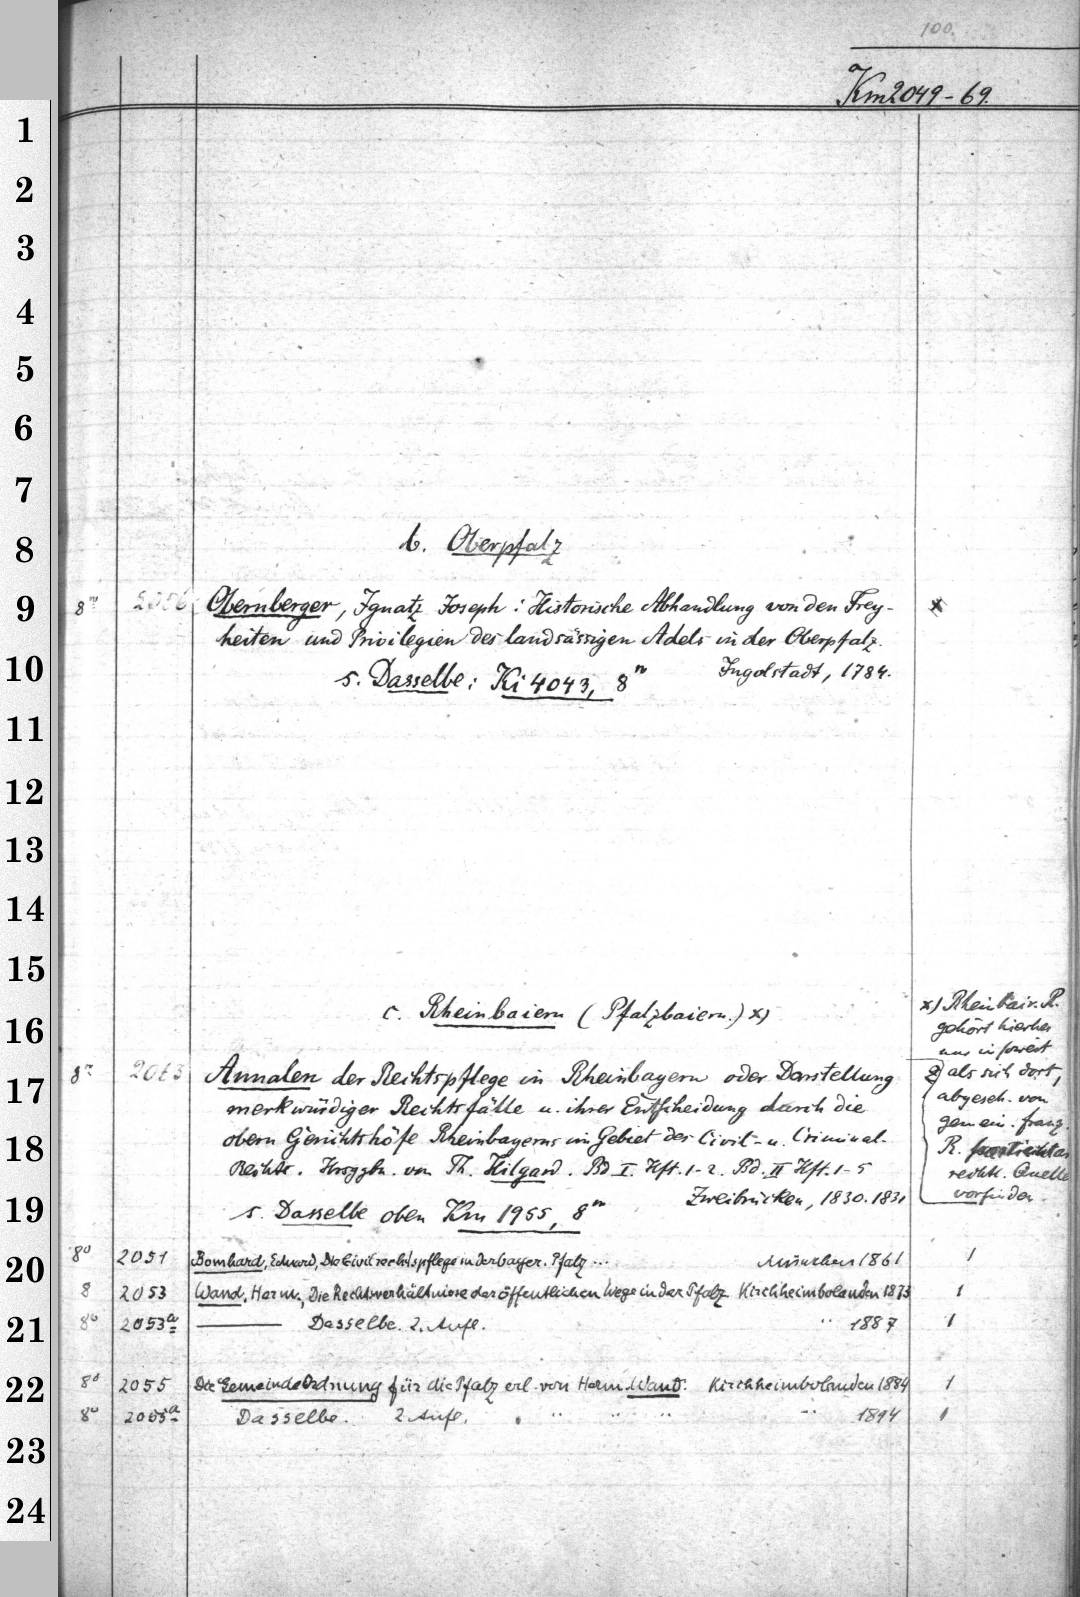 100.
Km 2049-69.
1
2
3
4
5
6
7
8 b. Oberpfalz
9 8° Obernberger, Ignatz Joseph: Historische Abhandlung von den Frey- x
heiten und Privilegien des landsässigen Adels in der Oberpfalz.
10 s. Dasselbe: Ki 4043, 8° Ingolstadt, 1784.
11
12
13
14
15
16 c. Rheinbaiern (Pfalzbaiern.) x)
x) Rheinbair. R.
gehört hierher
nur insoweit
17 8° 2063 Annalen der Rechtspflege in Rheinbayern oder Darstellung
als sich dort,
merkwürdiger Rechtsfälle u. ihrer Entscheidung durch die
abgeseh. von
gemein. franz.
18 obern Gerichtshöfe Rheinbayerns im Gebiet des Civil- u. Criminal-
R.
Rechts. Hrsggbn. von Th. Hilgard. Bd I. Hft. 1-2. Bd. II Hft. 1-5
rechtl. Quelle
vorfinden.
Zweibrücken, 1830. 1831
19 s. Dasselbe oben Km 1955, 8°
20 8° 2051 Bomhard, Eduard, Die Civilrechtspflege in der bayer. Pfalz... München 1861 1
8 2053 Wand, Herm., Die Rechtsverhältnisse der öffentlichen Wege in der Pfalz Kirchheimbolanden 1873 1
21 8° 2053a ——— Dasselbe. 2. Aufl. " 1887 1
22 8° 2055 Die Gemeinde Ordnung für die Pfalz erl. von Herm. Wand. Kirchheimbolanden 1884 1
8° 2055a Dasselbe. 2 Aufl. " " " " 1894 1
23
24